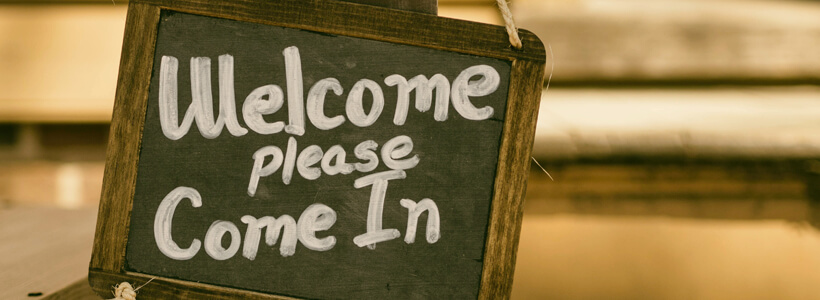 Welcome
please
Come In